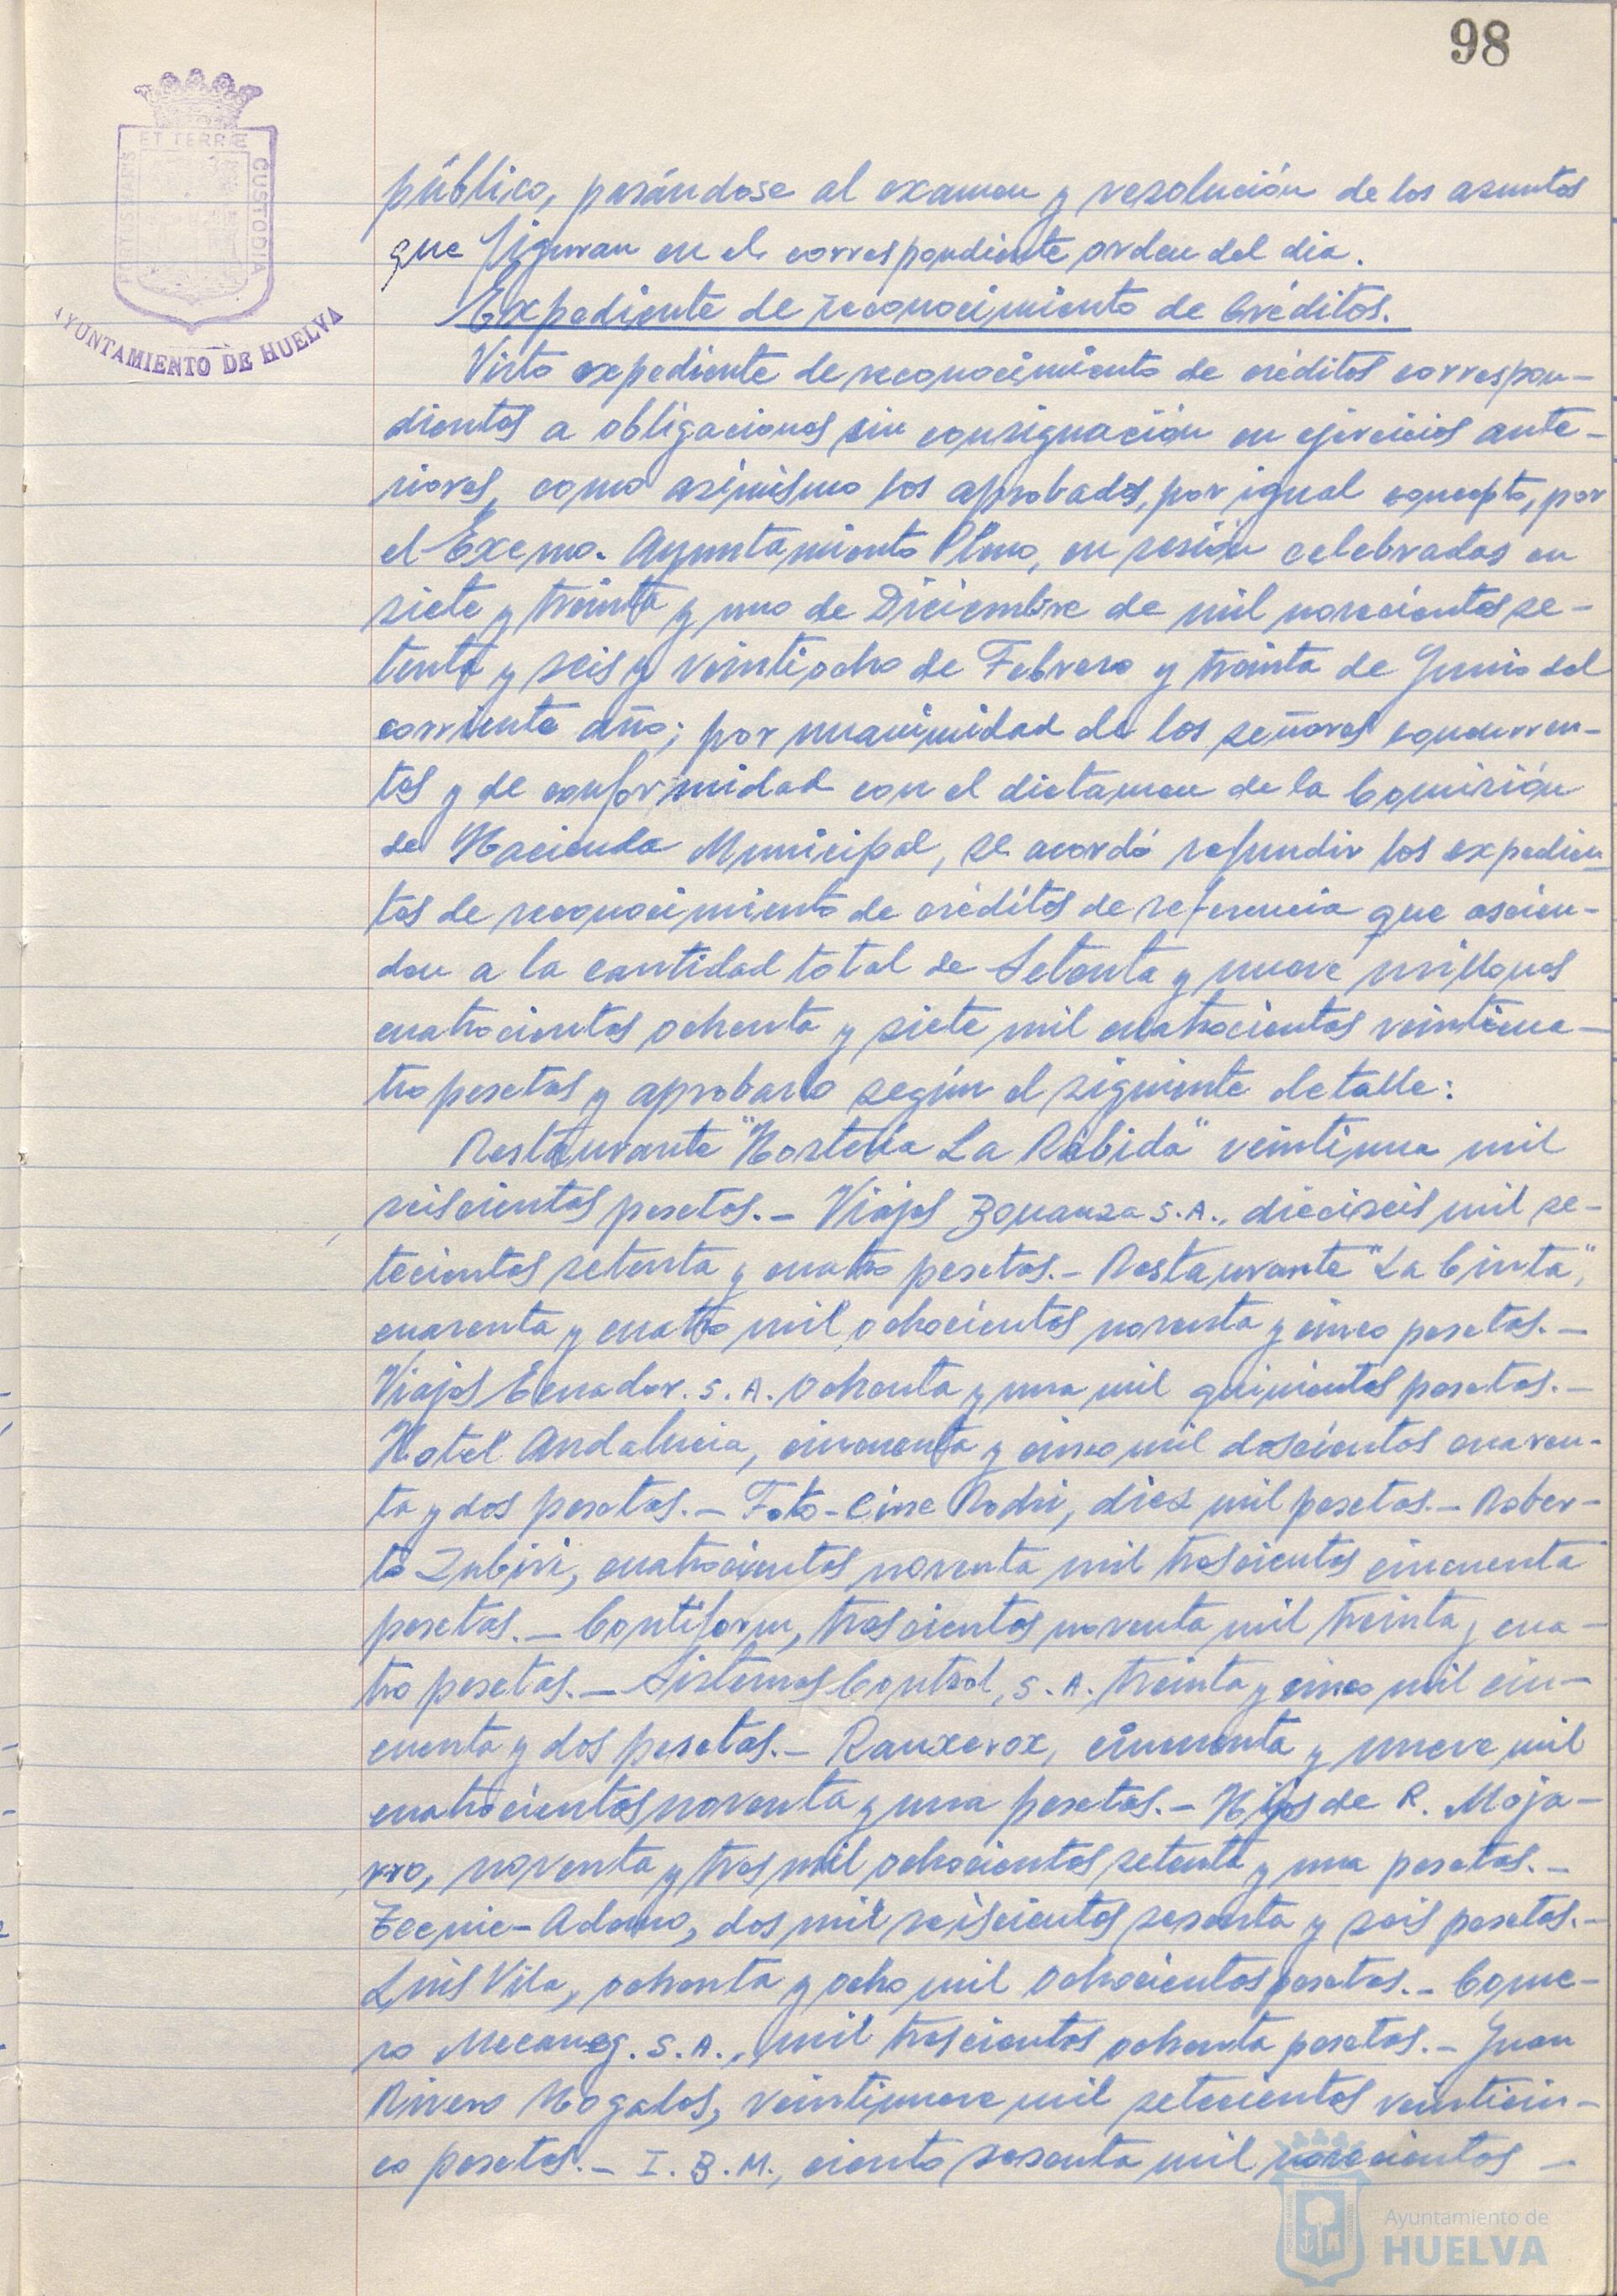 98
ET TERRÆ
CUSTODIA
PORTUS MARIS
AYUNTAMIENTO DE HUELVA
público, pasándose al examen y resolución de los asuntos
que figuran en el correspondiente orden del dia.
Expediente de reconocimiento de Créditos.
Visto expediente de reconocimiento de créditos correspon-
dientes a obligaciones sin consignación en ejercicios ante-
riores, como asimismo los aprobados, por igual concepto, por
el Excmo. Ayuntamiento Pleno, en sesión celebradas en
siete y treinta y uno de Diciembre de mil novecientos se-
tenta y seis y veintiocho de Febrero y treinta de Junio del
corriente año; por unanimidad de los señores concurren-
tes y de conformidad con el dictamen de la Comisión
de Hacienda Municipal, se acordó refundir los expedien
tes de reconocimiento de créditos de referencia que ascien-
den a la cantidad total de Setenta y nueve millones
cuatrocientos ochenta y siete mil cuatrocientos veinticua-
tro pesetas y aprobarlo según el siguiente detalle:
Restaurante "Hosteria La Rabida" veintiuna mil
seiscientas pesetas.- Viajes Bonanza S.A., dieciseis mil se-
tecientas setenta y cuatro pesetas.- Restaurante "La Cinta",
cuarenta y cuatro mil, ochocientas noventa y cinco pesetas.-
Viajes Ecuador. S.A. ochenta y una mil quinientas pesetas.-
Hotel Andalucia, cincuenta y cinco mil doscientas cuaren-
ta y dos pesetas.- Foto-Cine Rodri, diez mil pesetas.- Rober-
to Zubiri, cuatrocientas noventa mil trescientas cincuenta
pesetas.- Contiform, trescientas noventa mil treinta y cua-
tro pesetas.- Sistemas Control, S.A. treinta y cinco mil cin-
cuenta y dos pesetas.- Ranxerox, cincuenta y nueve mil
cuatrocientas noventa y una pesetas.- Hijos de R. Moja-
rro, noventa y tres mil ochocientas setenta y una pesetas.-
Tecnic-Adorno, dos mil seiscientas sesenta y seis pesetas.-
Luis Vila, ochenta y ocho mil ochocientas pesetas.- Come-
ro Mecanog. S.A., mil trescientas ochenta pesetas.- Juan
Rivero Nogales, veintinueve mil setecientas veinticin-
co pesetas.- I.B.M., ciento sesenta mil novecientas -
Ayuntamiento de
HUELVA